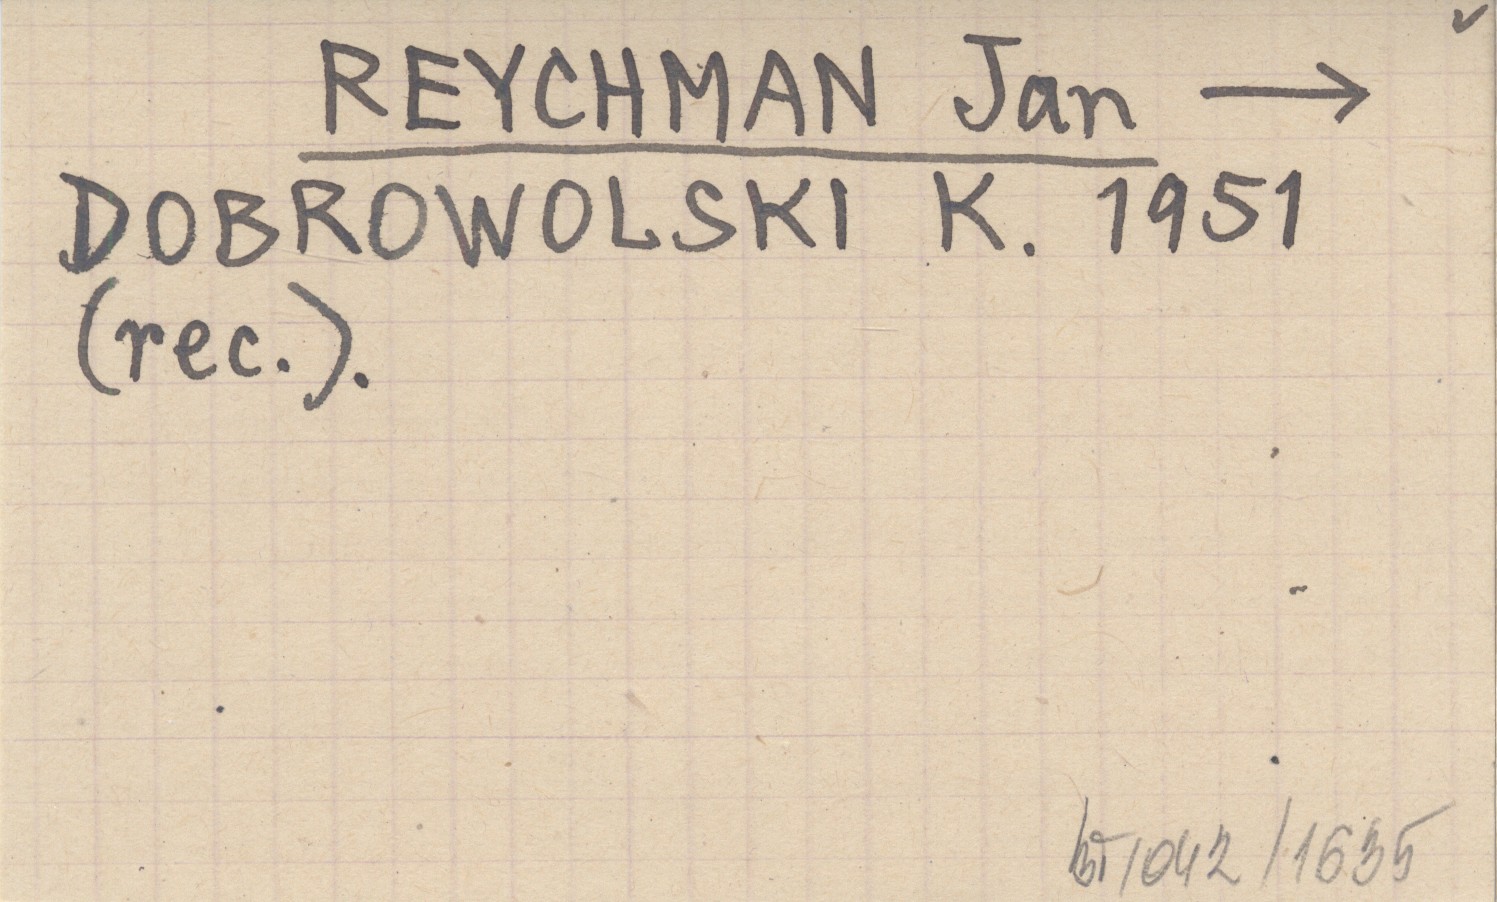 REYCHMAN Jan →
DOBROWOLSKI K. 1951
(rec.).
/1042/1635